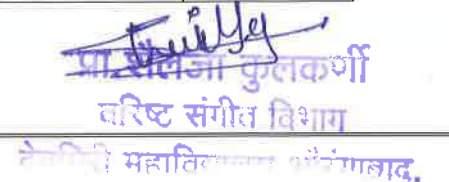 प्रा शैलजा कुलकर्णी
वरिष्ट संगीत विभाग
देवगिरी महाविद्यालय औरंगाबाद.